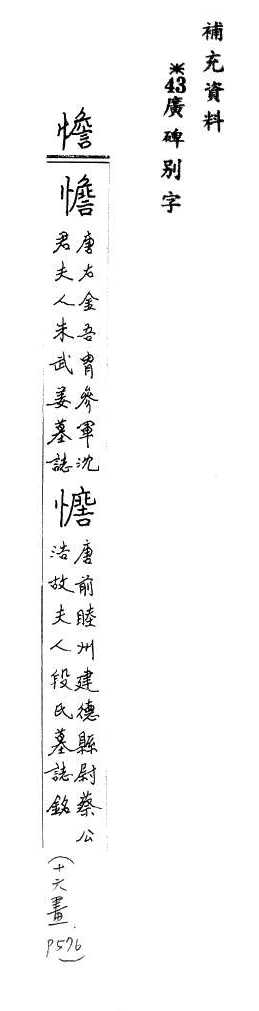 補充資料
※43廣碑别字
憺
憺
唐左金吾胄參軍沈
君夫人朱武姜墓誌
唐前睦州建德縣尉蔡公
浩故夫人段氏墓誌銘
(十六畫. P576)